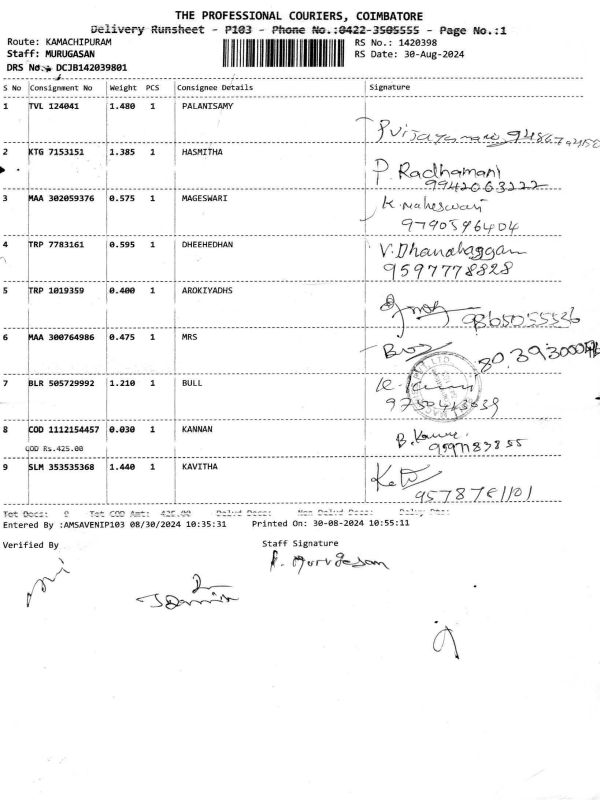 THE PROFESSIONAL COURIERS, COIMBATORE
Delivery Runsheet - P103 - Phone No.:0422-3505555 - Page No.:1
Route: KAMACHIPURAM RS No.: 1420398
Staff: MURUGASAN RS Date: 30-Aug-2024
DRS No.: DCJB142039801
S No Consignment No Weight PCS Consignee Details Signature
1 TVL 124041 1.480 1 PALANISAMY
2 KTG 7153151 1.385 1 HASMITHA
P. Radhamani
9942063222
3 MAA 302059376 0.575 1 MAGESWARI
K. Maheswari
9790596404
4 TRP 7783161 0.595 1 DHEEHEDHAN
V. Dhanabaggam
9597778828
5 TRP 1019359 0.400 1 AROKIYADHS
9865055536
6 MAA 300764986 0.475 1 MRS
7 BLR 505729992 1.210 1 BULL
8 COD 1112154457 0.030 1 KANNAN
COD Rs.425.00
9 SLM 353535368 1.440 1 KAVITHA
Tot Docs: 9 Tot COD Amt: 425.00 Delvd Docs: Non Delvd Docs: Delvy Pts:
Entered By :AMSAVENIP103 08/30/2024 10:35:31 Printed On: 30-08-2024 10:55:11
Verified By Staff Signature
P. Murugesan